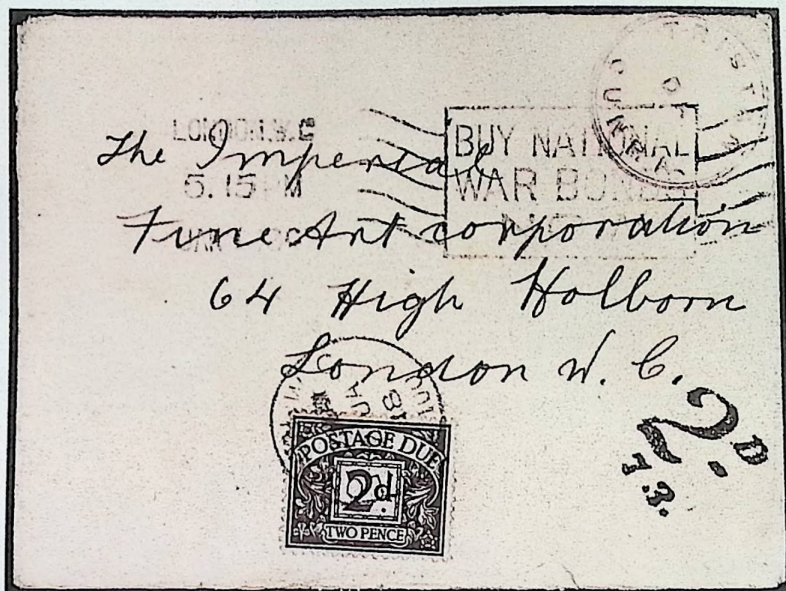 TRISTAN
DA
CUNHA
LONDON.W.C
5.15 PM
BUY NATIONAL
WAR BONDS
The Imperial
Fine Art corporation
64 High Holborn
London W. C.
18
POSTAGE DUE
2d.
TWO PENCE
2D.